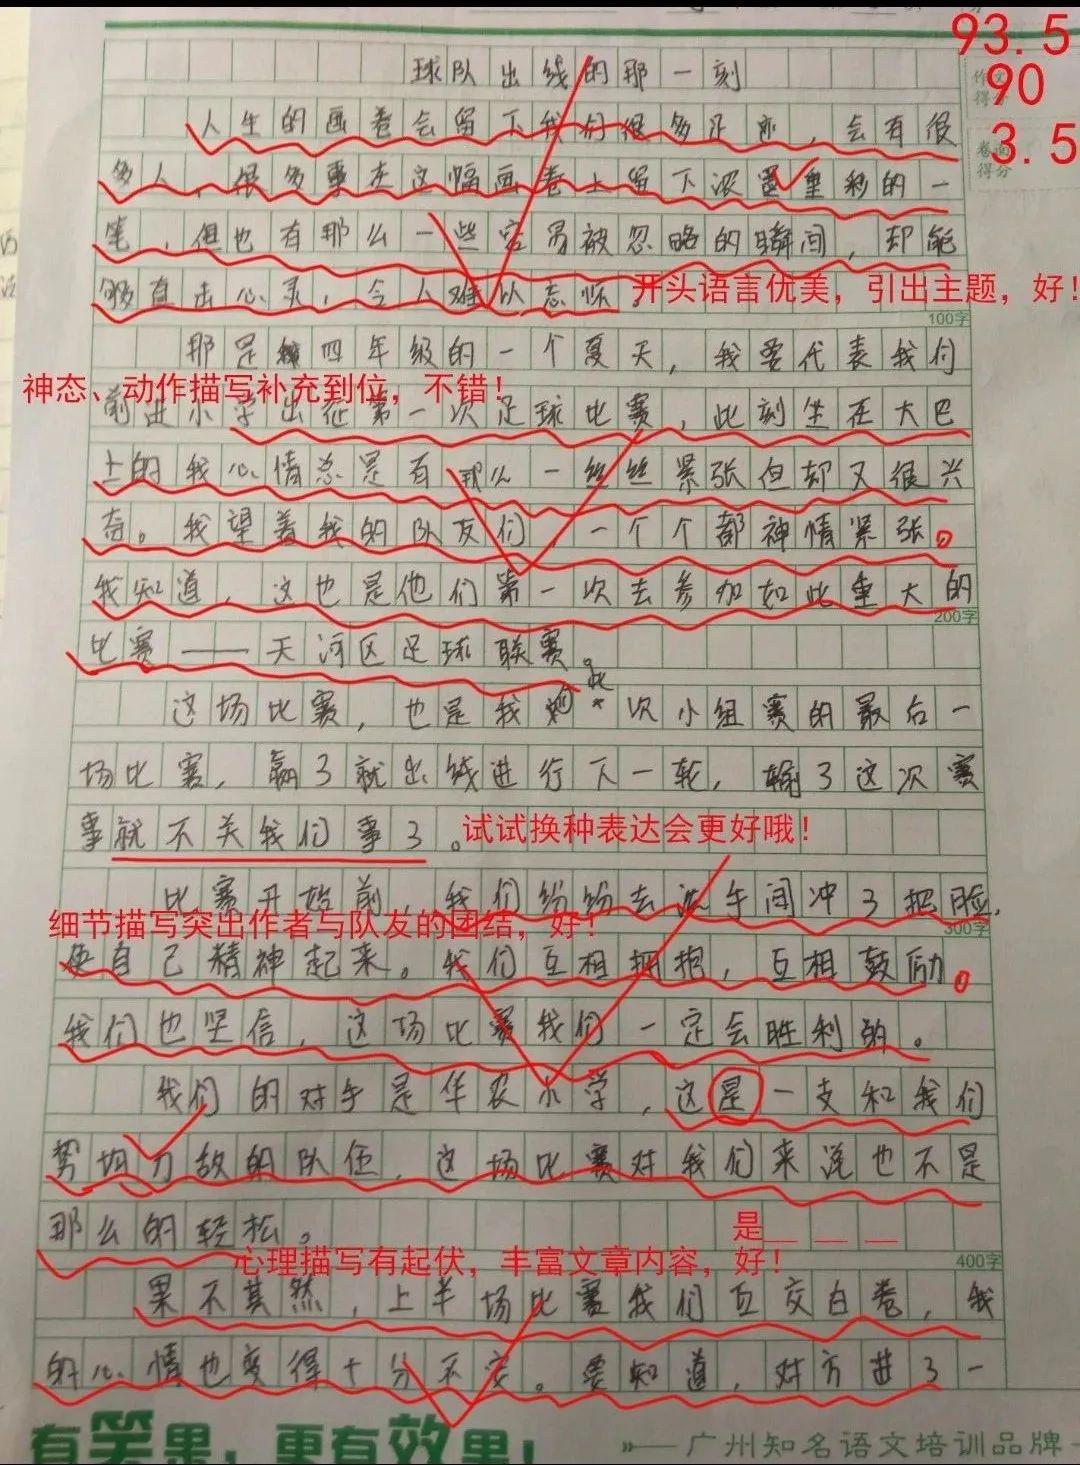 93.5
90
3.5
球队出线的那一刻
人生的画卷会留下我们很多足迹，会有很
多人，很多事在这幅画卷上留下浓墨重彩的一
笔，但也有那么一些容易被忽略的瞬间，却能
够直击心灵，令人难以忘怀。
开头语言优美，引出主题，好！
100字
那是 四年级的一个夏天，我要代表我们
神态、动作描写补充到位，不错！
前进小学出征第一次足球比赛，此刻坐在大巴
上的我心情总是有那么一丝丝紧张但却又很兴
奋。我望着我的队友们 一个个都神情紧张。
我知道，这也是他们第一次去参加如此重大的
200字
比赛——天河区足球联赛。
这场比赛，也是我 此次小组赛的最后一
场比赛，赢了就出线进行下一轮，输了这次赛
事就不关我们事了。
试试换种表达会更好哦！
比赛开始前，我们纷纷去洗手间冲了把脸，
细节描写突出作者与队友的团结，好！
300字
使自己精神起来。我们互相拥抱，互相鼓励。
我们也坚信，这场比赛我们一定会胜利的。
我们的对手是华农小学，这是一支和我们
势均力敌的队伍，这场比赛对我们来说也不是
那么的轻松。
是_ _ _
心理描写有起伏，丰富文章内容，好！
400字
果不其然，上半场比赛我们互交白卷，我
的心情也变得十分不安。要知道，对方进了一
有笑果，更有效果！
广州知名语文培训品牌